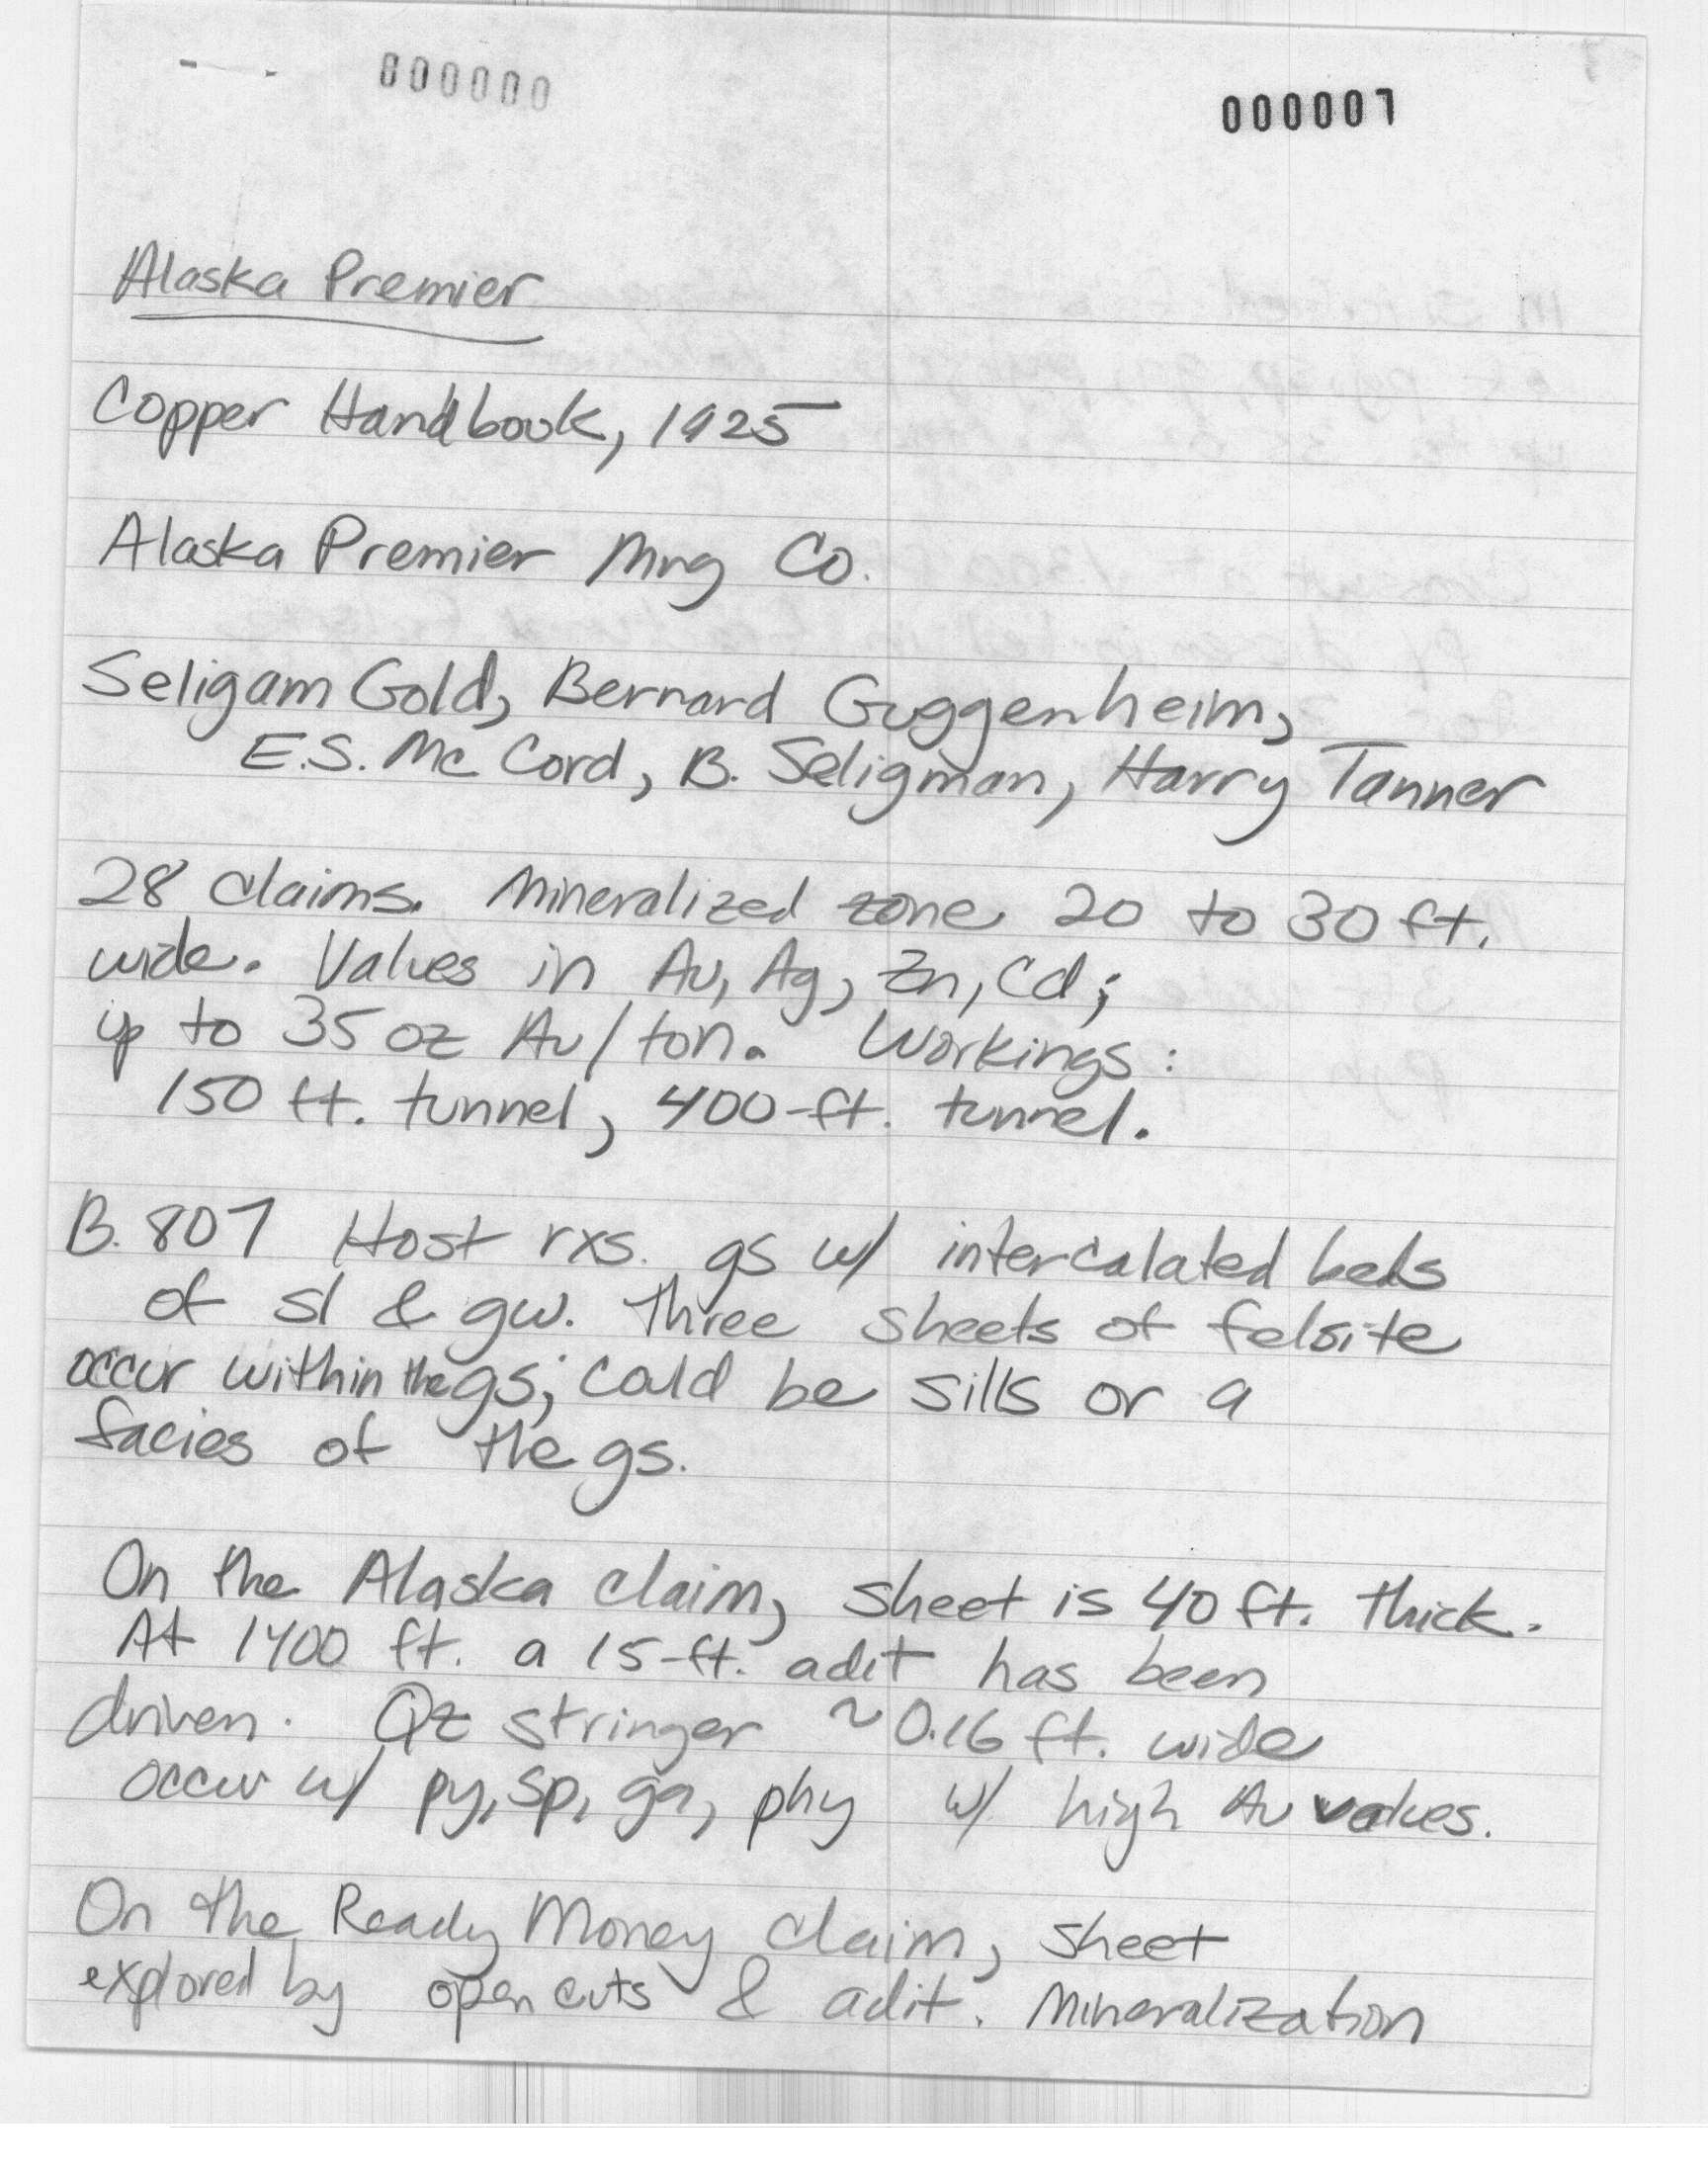 000000
000007
Alaska Premier
Copper Handbook, 1925
Alaska Premier Mng Co.
Seligam Gold, Bernard Guggenheim,
E.S. McCord, B. Seligman, Harry Tanner
28 claims. Mineralized zone 20 to 30 ft.
wide. Values in Au, Ag, Zn, Cd;
up to 35 oz Au/ton. Workings:
150 ft. tunnel, 400-ft. tunnel.
B. 807 Host rxs. gs w/ intercalated beds
of sl & gw. Three sheets of felsite
occur within the gs; could be sills or a
facies of the gs.
On the Alaska claim, sheet is 40 ft. thick.
At 1400 ft. a 15-ft. adit has been
driven. Qz stringer ~0.16 ft. wide
occur w/ py, sp, ga, phy w/ high Au values.
On the Ready Money claim, sheet
explored by open cuts & adit. Mineralization